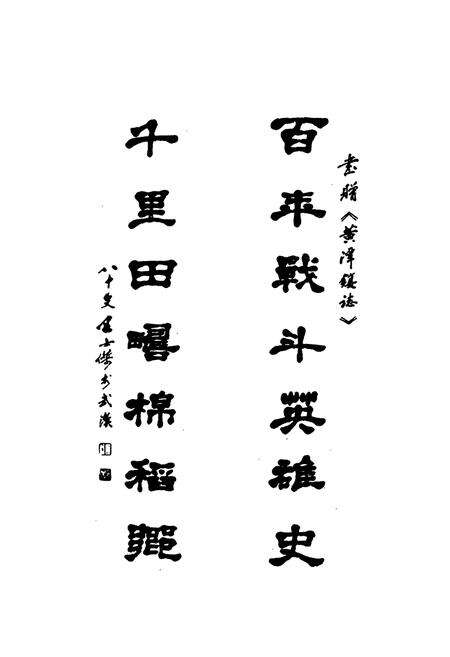 書贈《黄潭镇誌》
百年戰斗英雄史
千里田疇棉稻鄉
八十叟士傑书武漢